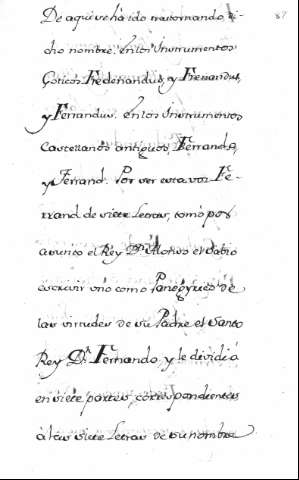 87
De aqui se há ido trastornando di-
cho nombre. en los Instrumentos
Goticos Fredenandus, y Frenandus,
y Fernandus. en los Instrumentos
Castellanos antiguos, Ferrando,
y Ferrand. Por ser esta voz Fe-
rrand de siete Letras, tomó por
asunto el Rey Dn. Alonso el Sabio
escrivir uno como Panegyrico de
las virtudes de su Padre el Santo
Rey Dn. Fernando, y le dividio
en siete partes, correspondientes
à las siete Letras de su nombre